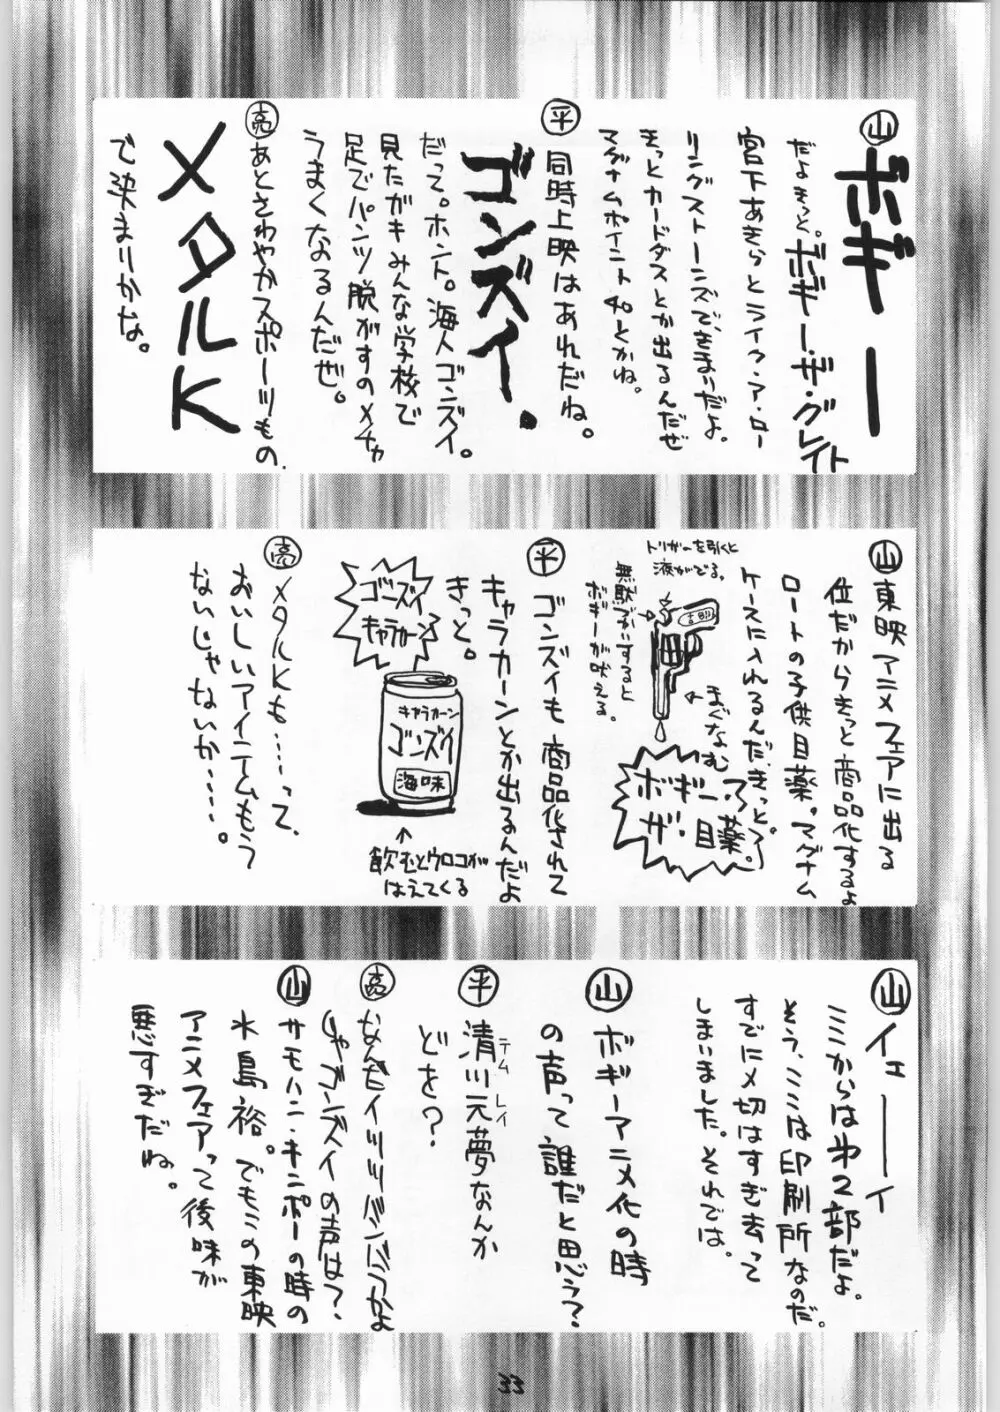 山
ボギー
だよきっと。ボギー・ザ・グレイト
宮下あきらとライク・ア・ロー
リングストーンズできまりだよ。
きっとカードダスとか出るんだぜ
マグナムポイント40とかね。
平
同時上映はあれだね。
ゴンズイ.
だって。ホント。海人ゴンズイ。
見たガキみんな学校で
足でパンツ脱がすのメチャ
うまくなるんだぜ。
亮
あとさわやかスポーツもの.
メタルK
で決まりかな。
山
東映アニメフェアに出る
位だからきっと商品化するよ
ロートの子供目薬。マグナム
ケースに入れるんだ、きっと。
トリガーを引くと
液がでる。
無駄づかいすると
ボギーが吠える。
まぐなむ
ボギー・ザ・目薬。
平
ゴンズイも商品化されて
キャラカーンとか出るんだよ
きっと。
ゴンズイ
キャラカーン
キャラカーン
ゴンズイ
海味
飲むとウロコが
はえてくる
亮
メタルKも……って、
おいしいアイテムもう
ないじゃないか……。
山
イェーイ
ミミからは第2部だよ。
そう、ここは印刷所なのだ。
すでにメ切はすぎ去って
しまいました。それでは。
山
ボギーアニメ化の時
の声って誰だと思う?
平
清川元夢なんか
テム レイ
どを?
亮
じゃゴンズイの声は?
山
サモハン・キンポーの時の
水島裕。でもこの東映
アニメフェアって後味が
悪すぎだね。
33